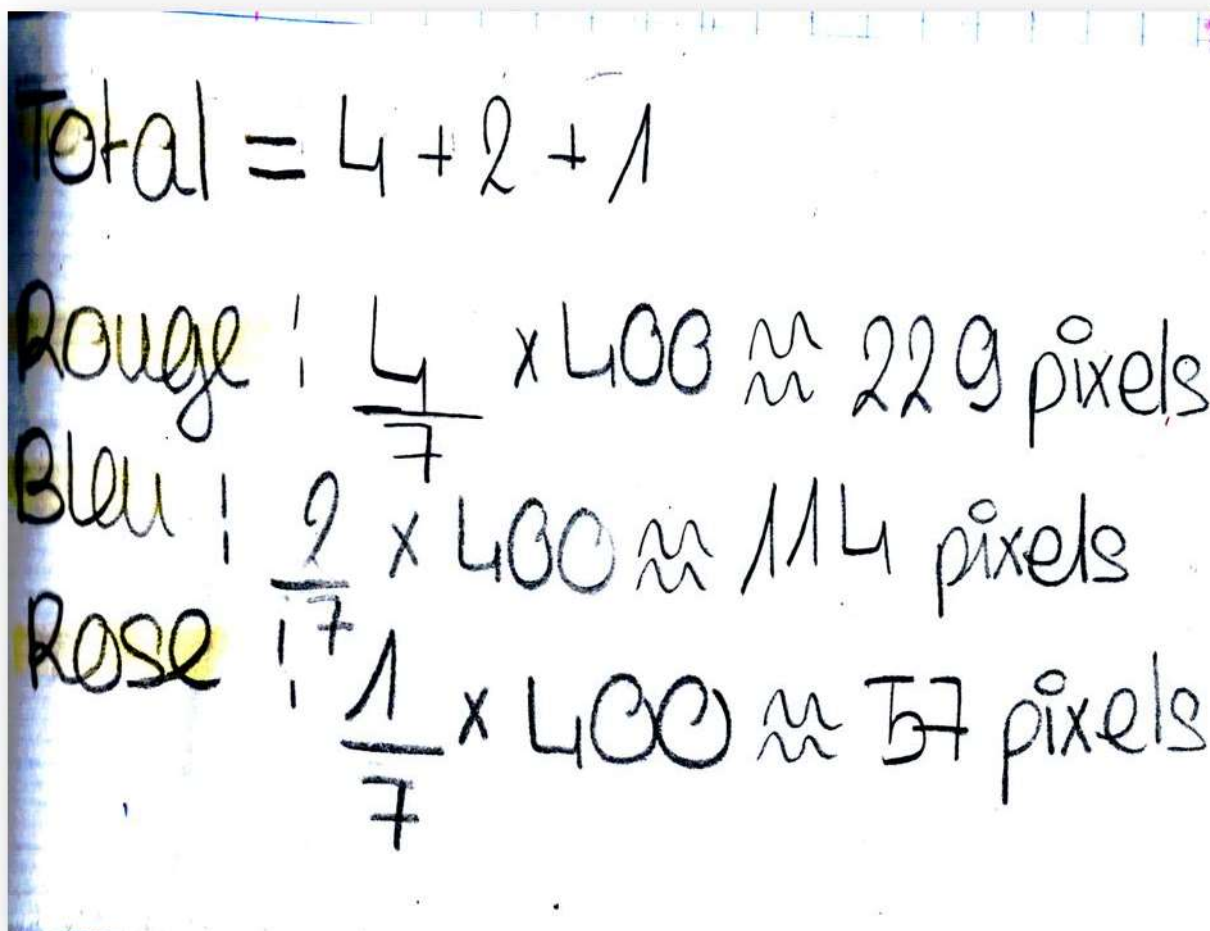 Total = 4 + 2 + 1
Rouge : 4/7 x 400 ≈ 229 pixels
Bleu : 2/7 x 400 ≈ 114 pixels
Rose : 1/7 x 400 ≈ 57 pixels